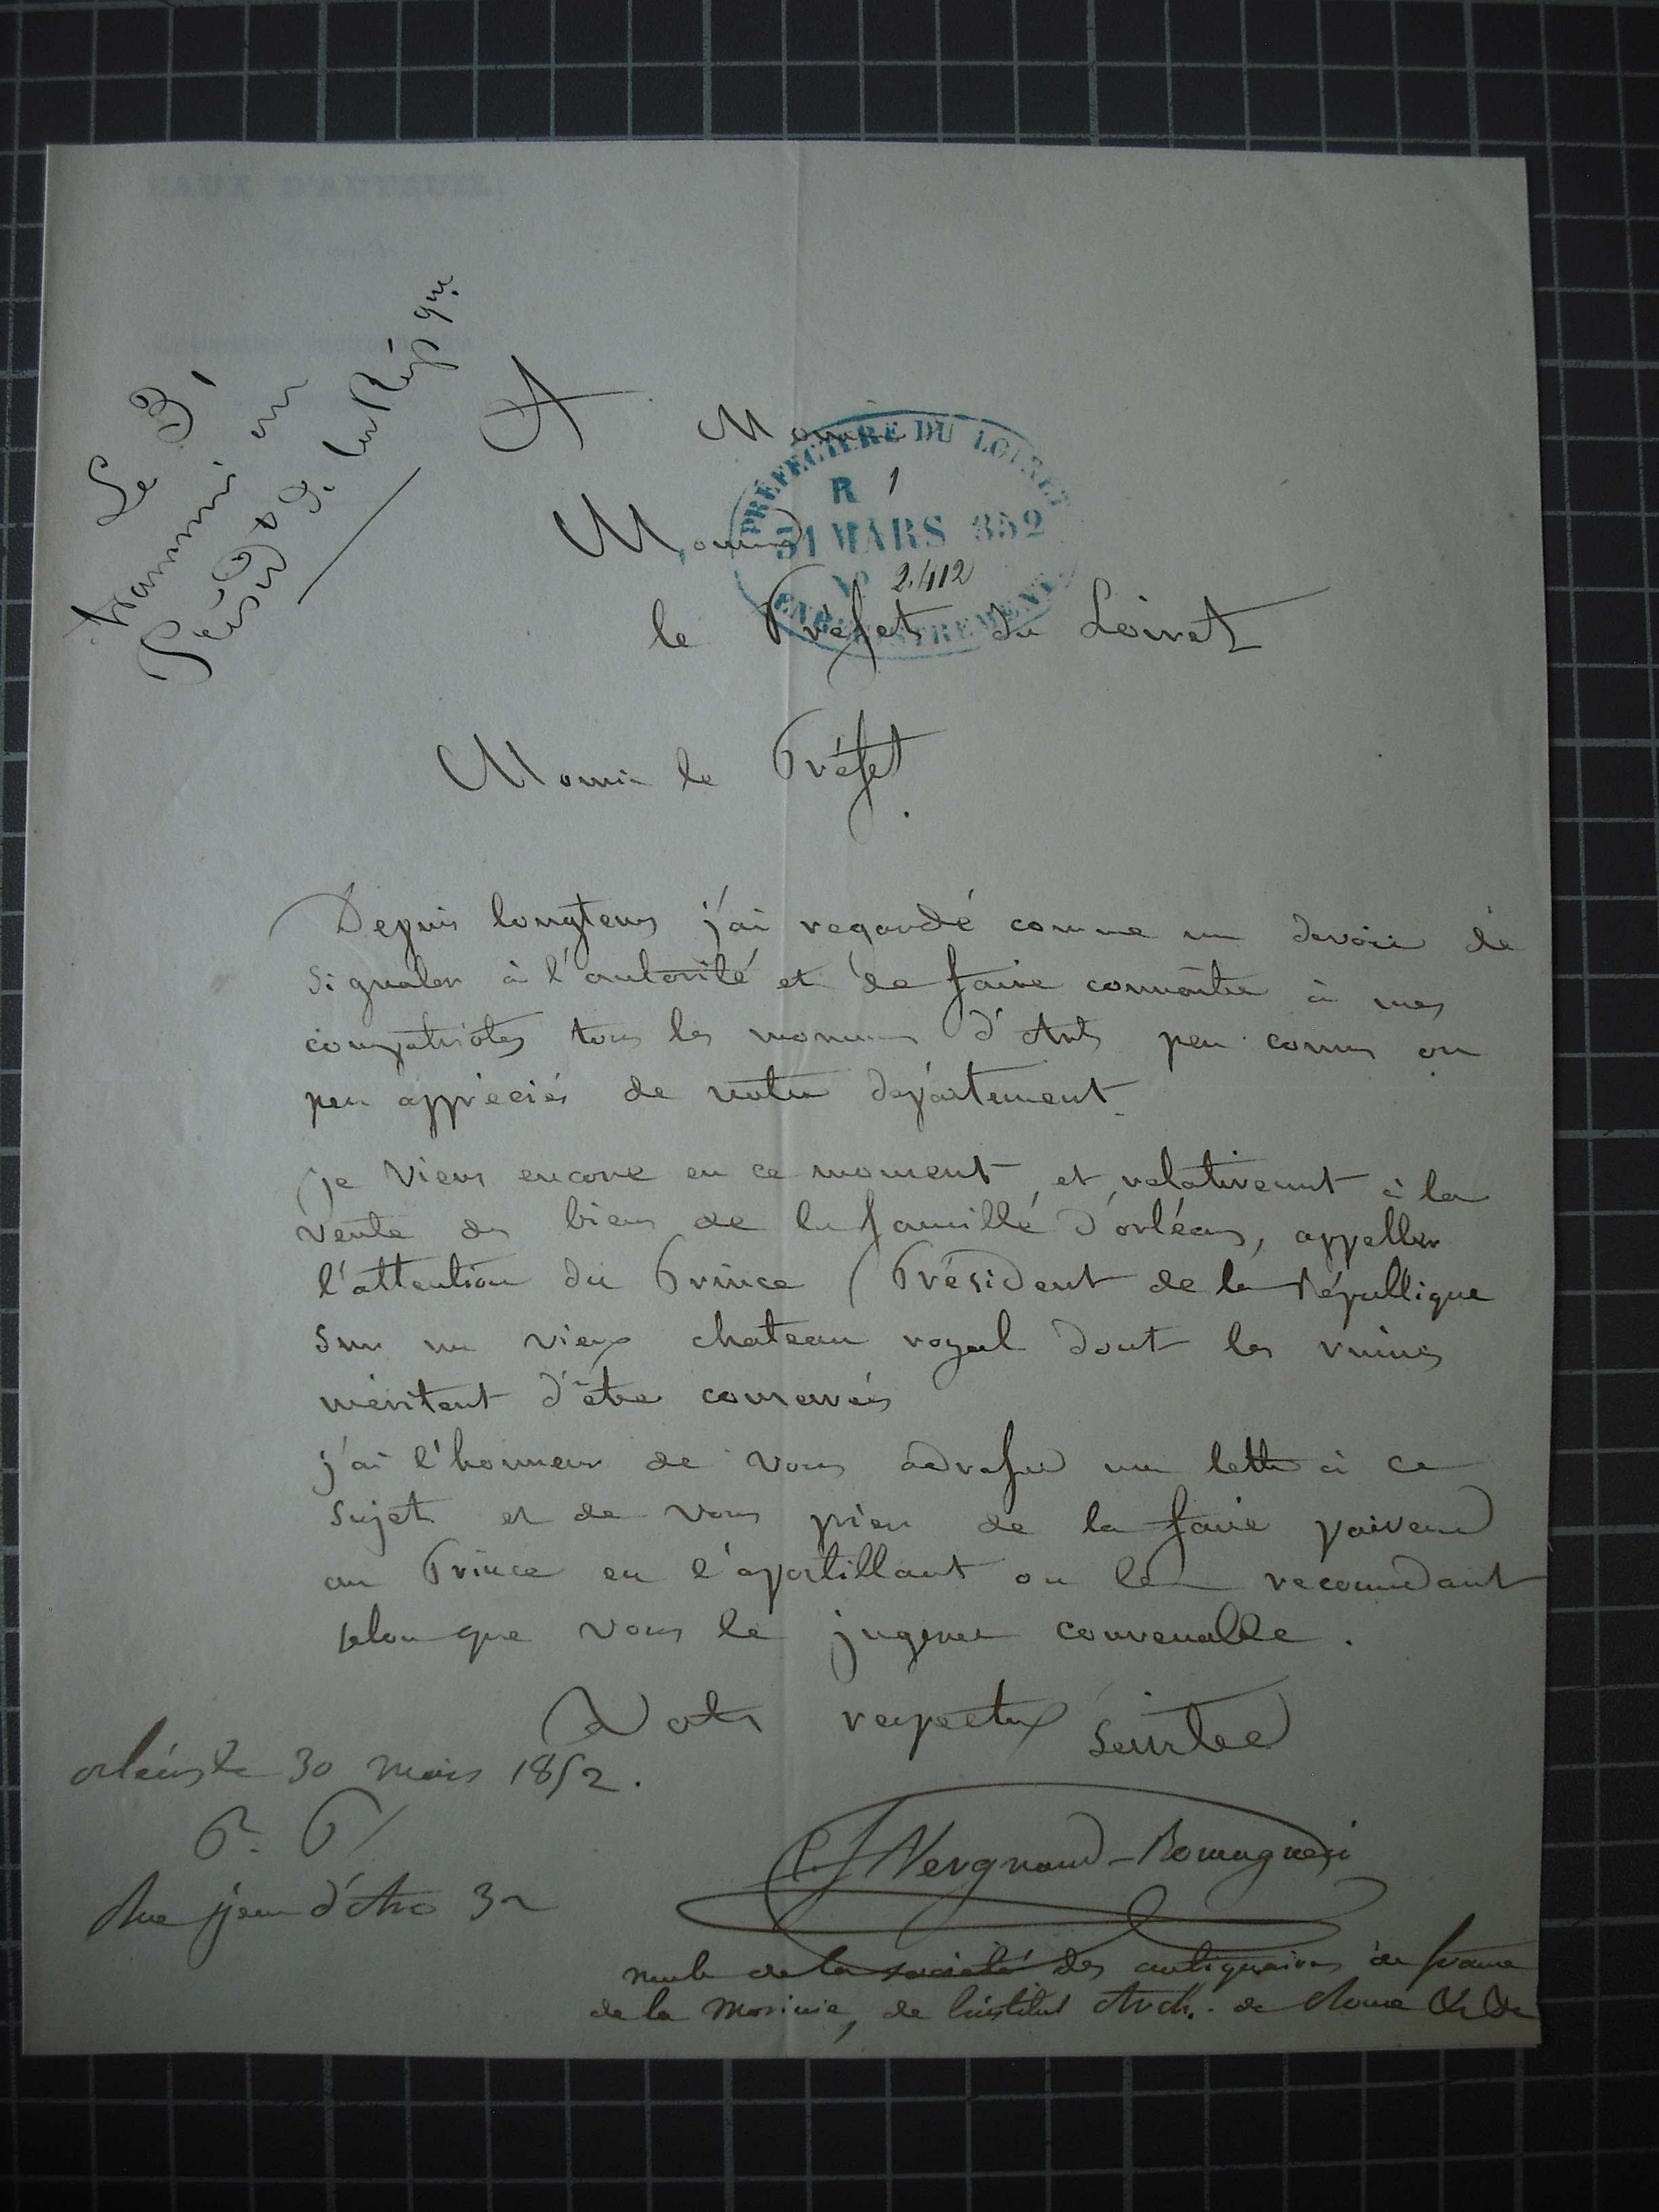 EAUX D'AUTEUIL.
Le 31
transmis au
Présid. de la Rép que.
A
Monsieur
PRÉFECTURE DU LOIRET
R 1
31 MARS 1852
N° 2.412
ENREGISTREMENT
Monsieur
le Préfet du Loiret
Monsir le Préfet
Depuis longtems j'ai regardé comme un devoir de
signaler à l'autorité et de faire connoître à mes
compatriotes tous les monum d'Arts peu connus ou
peu appréciés de notre département.
je viens encore en ce moment, et relativemnt à la
vente des biens de la famille d'orléans, appeller
l'attention du Prince Président de la République
sur un vieux chateau royal dont les ruines
méritent d'être conservées
j'ai l'honneur de vous adresser une lettre à ce
sujet et de vous prier de la faire parvenir
au Prince en l'apostillant ou la recomdant
selon que vous le jugerez convenable.
Votre respectux servite
orléans le 30 mars 1852.
Rue jeanne d'Arc 32
C F Vergnaud-Romagnesi
memb de la société des antiquaires de france
de la Morinie, de l'institut Arch. de Rome &c &c